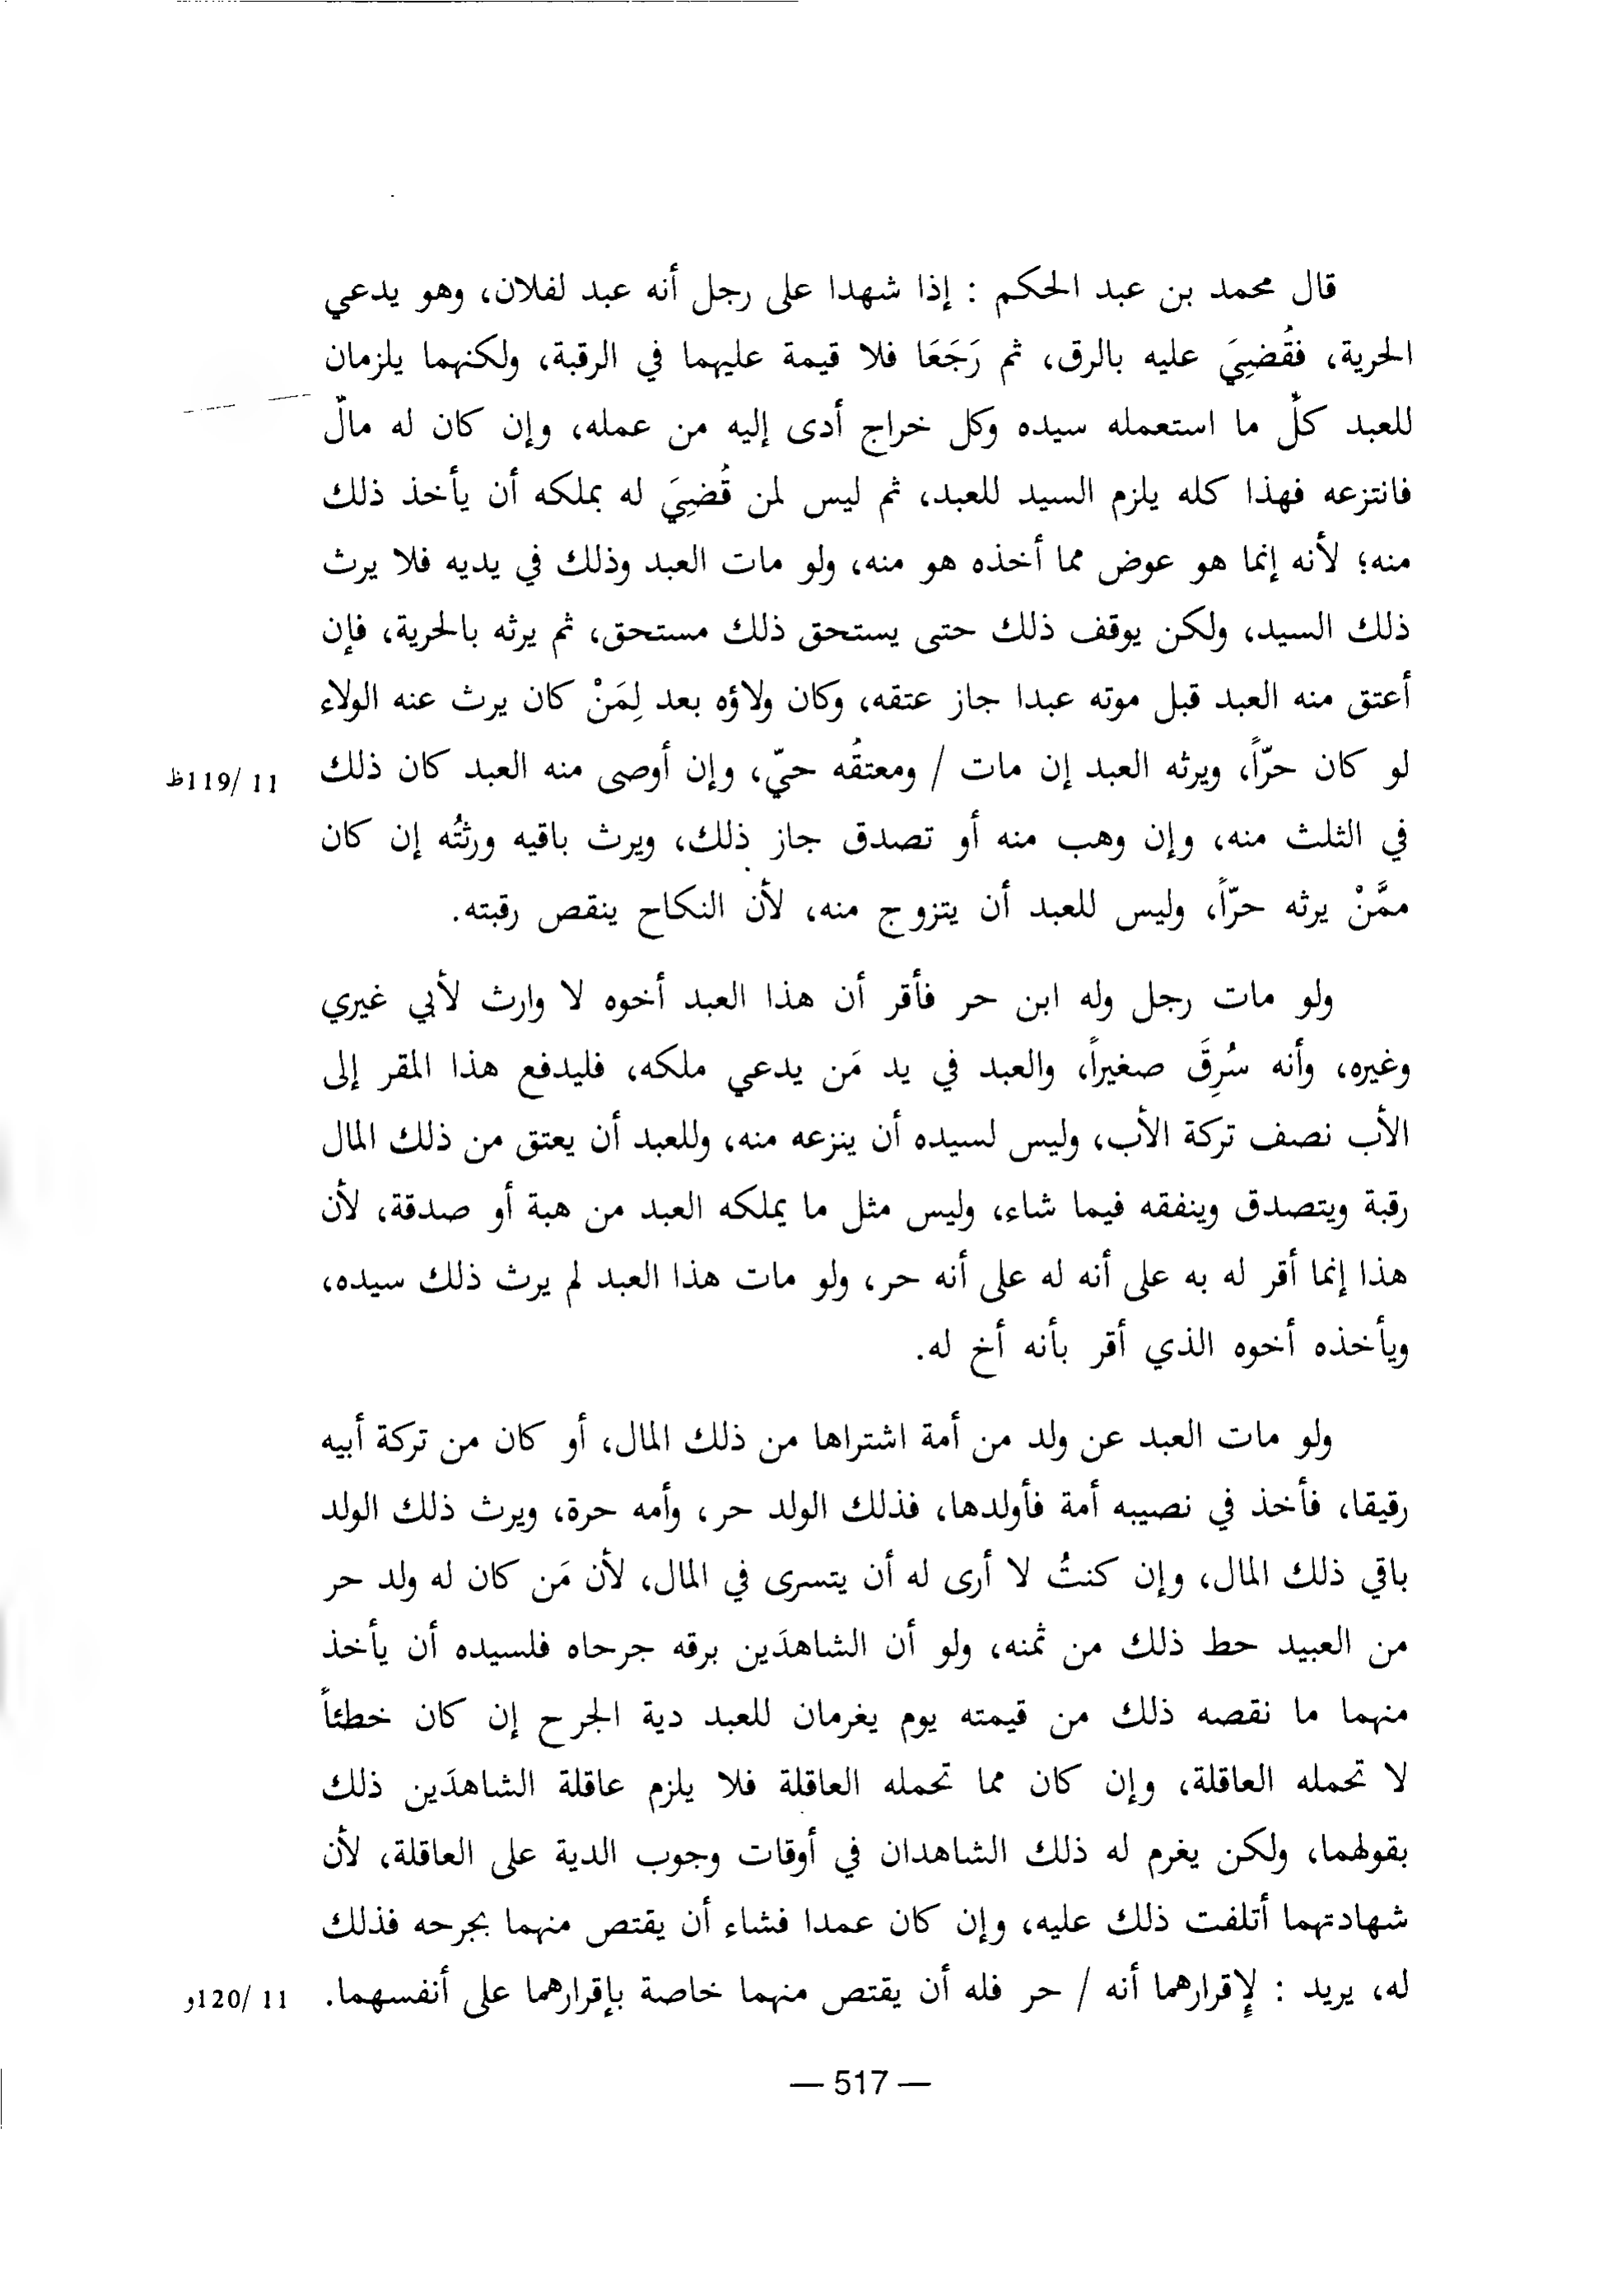 قال محمد بن عبد الحكم : إذا شهدا على رجل أنه عبد لفلان، وهو يدعي
الحرية، فقُضِيَ عليه بالرق، ثم رَجَعَا فلا قيمة عليهما في الرقبة، ولكنهما يلزمان
للعبد كلّ ما استعمله سيده وكل خراج أدى إليه من عمله، وإن كان له مالٌ
فانتزعه فهذا كله يلزم السيد للعبد، ثم ليس لمن قُضِيَ له بملكه أن يأخذ ذلك
منه؛ لأنه إنما هو عوض مما أخذه هو منه، ولو مات العبد وذلك في يديه فلا يرث
ذلك السيد، ولكن يوقف ذلك حتى يستحق ذلك مستحق، ثم يرثه بالحرية، فإن
أعتق منه العبد قبل موته عبدا جاز عتقه، وكان ولاؤه بعد لِمَنْ كان يرث عنه الولاء
لو كان حرّاً، ويرثه العبد إن مات / ومعتقُه حيّ، وإن أوصى منه العبد كان ذلك
11 /119ظ
في الثلث منه، وإن وهب منه أو تصدق جاز ذلك، ويرث باقيه ورثتُه إن كان
ممَّنْ يرثه حرّاً، وليس للعبد أن يتزوج منه، لأن النكاح ينقص رقبته.
ولو مات رجل وله ابن حر فأقر أن هذا العبد أخوه لا وارث لأبي غيري
وغيره، وأنه سُرِقَ صغيراً، والعبد في يد مَن يدعي ملكه، فليدفع هذا المقر إلى
الأب نصف تركة الأب، وليس لسيده أن ينزعه منه، وللعبد أن يعتق من ذلك المال
رقبة ويتصدق وينفقه فيما شاء، وليس مثل ما يملكه العبد من هبة أو صدقة، لأن
هذا إنما أقر له به على أنه له على أنه حر، ولو مات هذا العبد لم يرث ذلك سيده،
ويأخذه أخوه الذي أقر بأنه أخ له.
ولو مات العبد عن ولد من أمة اشتراها من ذلك المال، أو كان من تركة أبيه
رقيقا، فأخذ في نصيبه أمة فأولدها، فذلك الولد حر، وأمه حرة، ويرث ذلك الولد
باقي ذلك المال، وإن كنتُ لا أرى له أن يتسرى في المال، لأن مَن كان له ولد حر
من العبيد حط ذلك من ثمنه، ولو أن الشاهدَين برقه جرحاه فلسيده أن يأخذ
منهما ما نقصه ذلك من قيمته يوم يغرمان للعبد دية الجرح إن كان خطئاً
لا تحمله العاقلة، وإن كان مما تحمله العاقلة فلا يلزم عاقلة الشاهدَين ذلك
بقولهما، ولكن يغرم له ذلك الشاهدان في أوقات وجوب الدية على العاقلة، لأن
شهادتهما أتلفت ذلك عليه، وإن كان عمدا فشاء أن يقتص منهما بجرحه فذلك
له، يريد : لإقرارهما أنه / حر فله أن يقتص منهما خاصة بإقرارهما على أنفسهما.
11 /120و
— 517 —